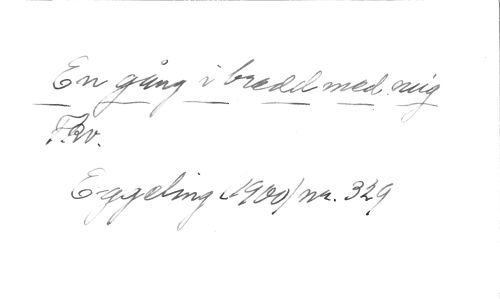 En gång i bredd med mig
F.kv.
Eggeling (1900) nr. 329